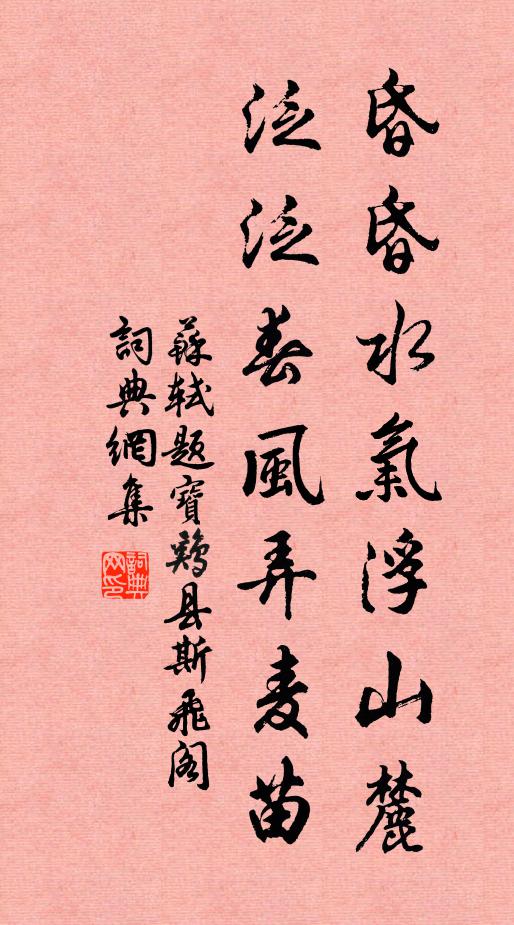 昏昏水氣浮山麓
泛泛春風弄麦苗
蘇軾题寶鷄县斯飛阁
詞典網集
詞典网印